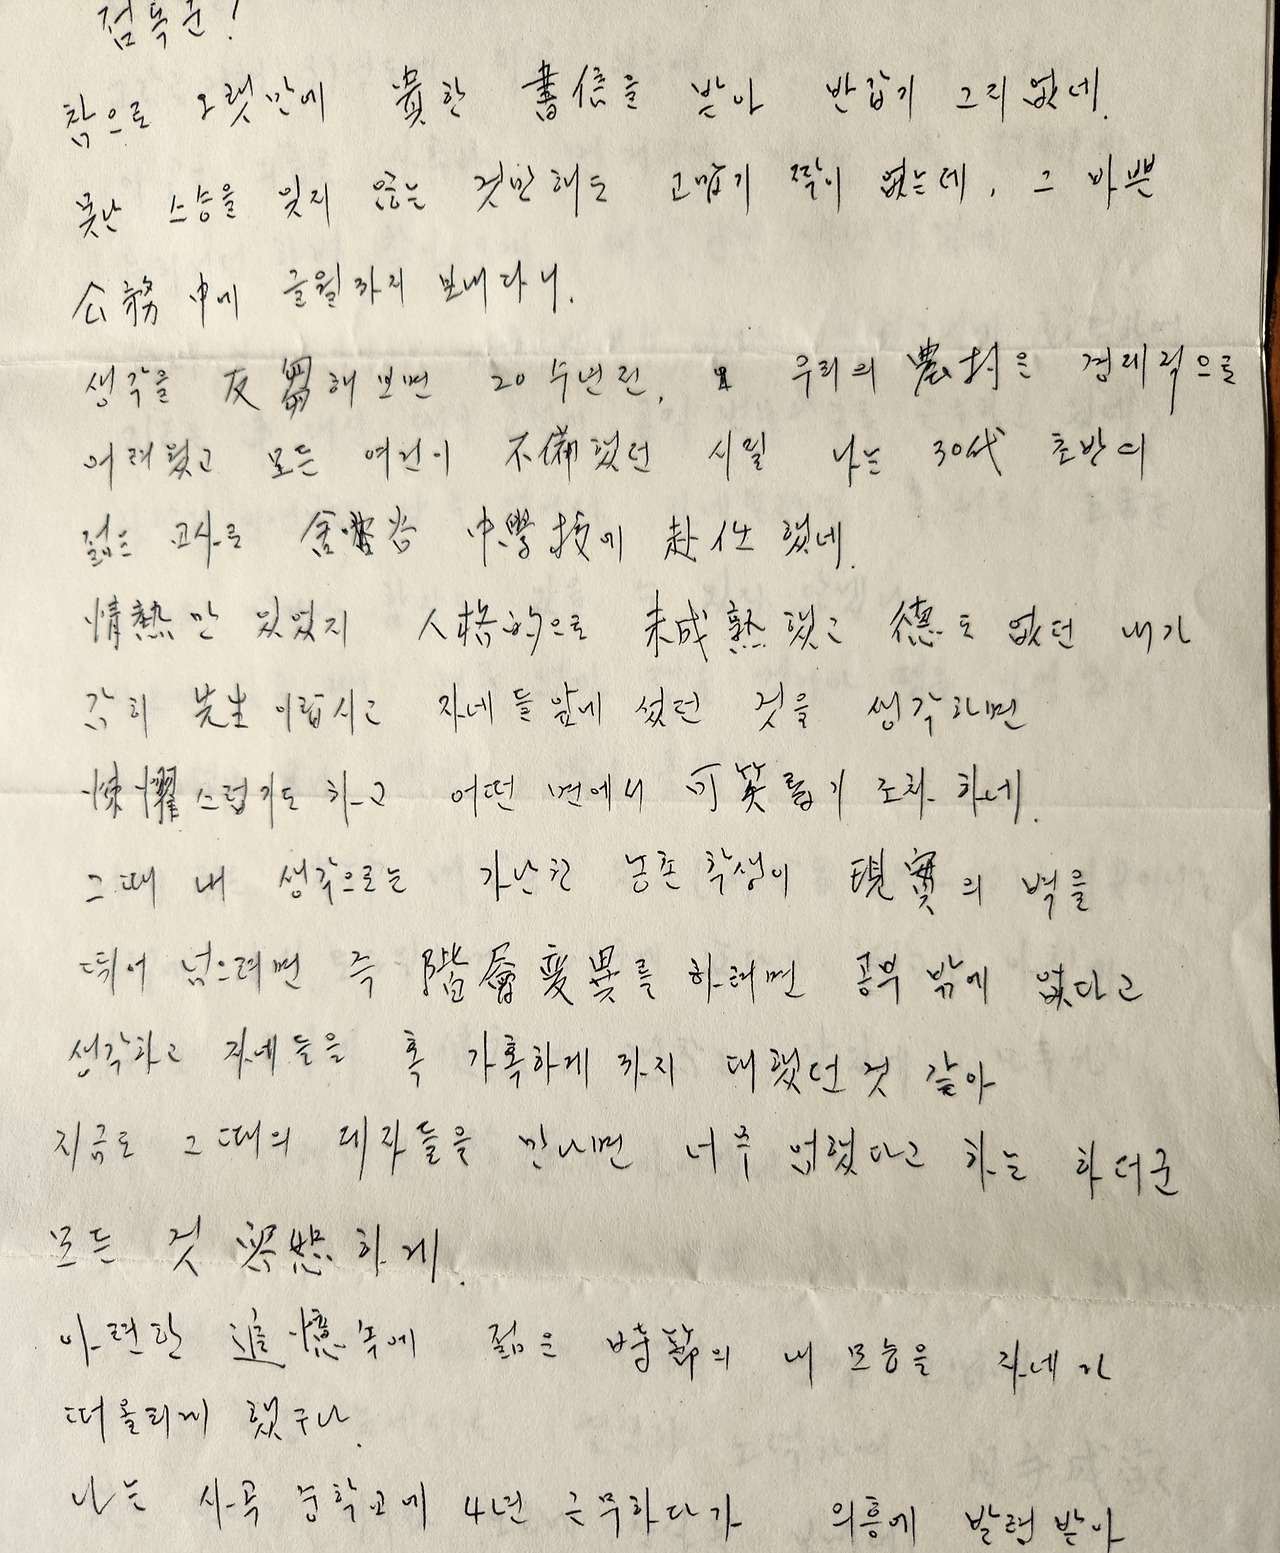 점득군!
참으로 오랫만에 貴한 書信을 받아 반갑기 그지없네.
못난 스승을 잊지 않는 것만해도 고맙기 짝이 없는데, 그 바쁜
公務中에 글월까지 보내다니.
생각을 反芻해보면 20수년전, 우리의 農村은 경제적으로
어려웠고 모든 여건이 不備했던 시절 나는 30代 초반의
젊은 교사로 舍谷 中學校에 赴任했네.
情熱만 있었지 人格的으로 未成熟했고 德도 없던 내가
감히 先生이랍시고 자네들앞에 섰던 것을 생각하면
悚懼스럽기도 하고 어떤 면에서 可笑롭기 조차 하네.
그때 내 생각으로는 가난한 농촌 학생이 現實의 벽을
뛰어 넘으려면 즉 階層変異를 하려면 공부 밖에 없다고
생각하고 자네들을 혹 가혹하게 까지 대했던 것 같아
지금도 그때의 제자들을 만나면 너무 엄했다고 하는 하더군
모든 것 容恕하게.
아련한 追憶속에 젊은 時節의 내 모습을 자네가
떠올리게 했구나.
나는 사곡 중학교에 4년 근무하다가 의흥에 발령받아